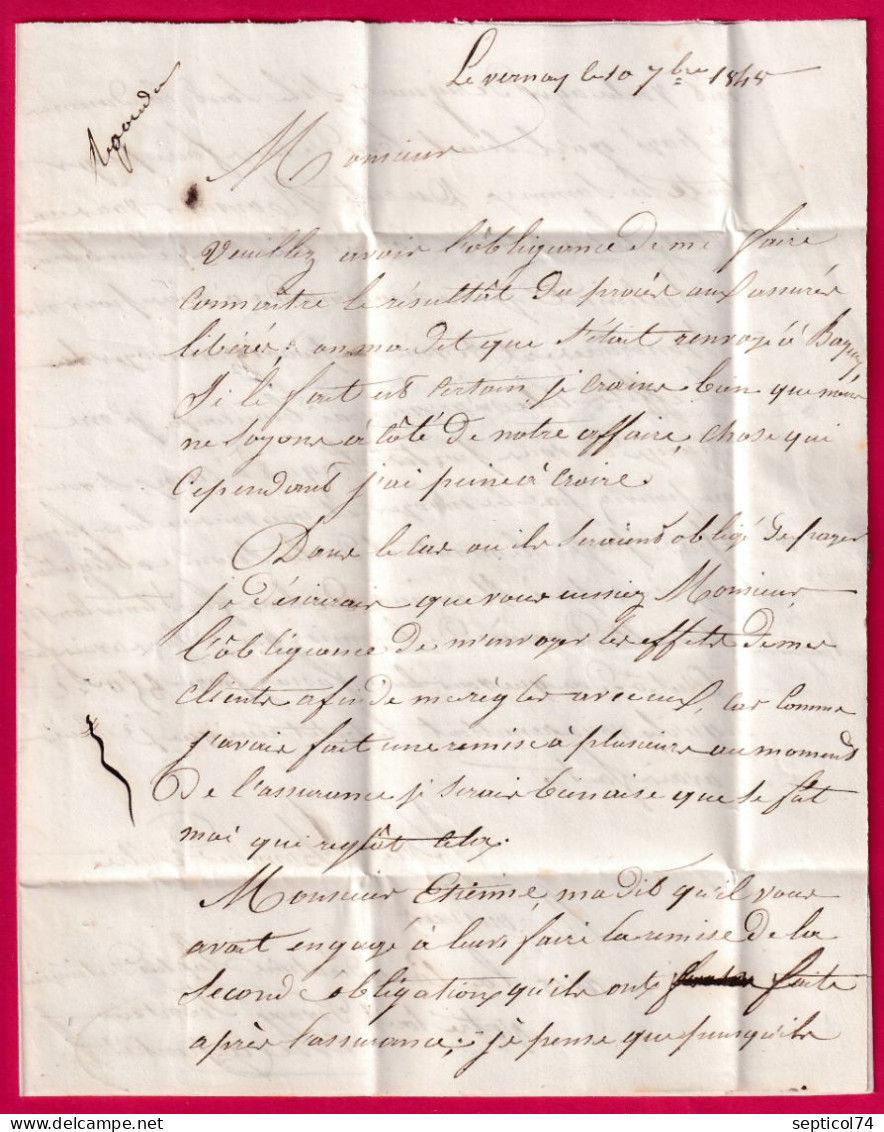 Le vernay le 10 7bre 1848
Monsieur
Veuillez avoir l'ôbligeance de me faire
connaître le résultât du procès aux assurés
libérés; on ma dit que s'était renvoyé à
Si le fait est certain, je crains bien que nous
ne soyons à côté de notre affaire, chose qui
cependant j'ai peine à croire.
Dans le cas ou ils seraient obligé de payer
je désirerais que vous eussiez Monsieur
l'ôbligeance de m'envoyer les effets de mes
clients afin de me régler avec eux, car comme
j'avais fait une remise à plusieurs au moment
de l'assurance je serais bien aise que se fut
moi qui reglât cela.
Monsieur Etienne, ma dit qu'il vous
avait engagé à leurs faire la remise de la
seconde obligation qu'ils ont faite
après l'assurance; je pense que puisqu'ils
septicol74